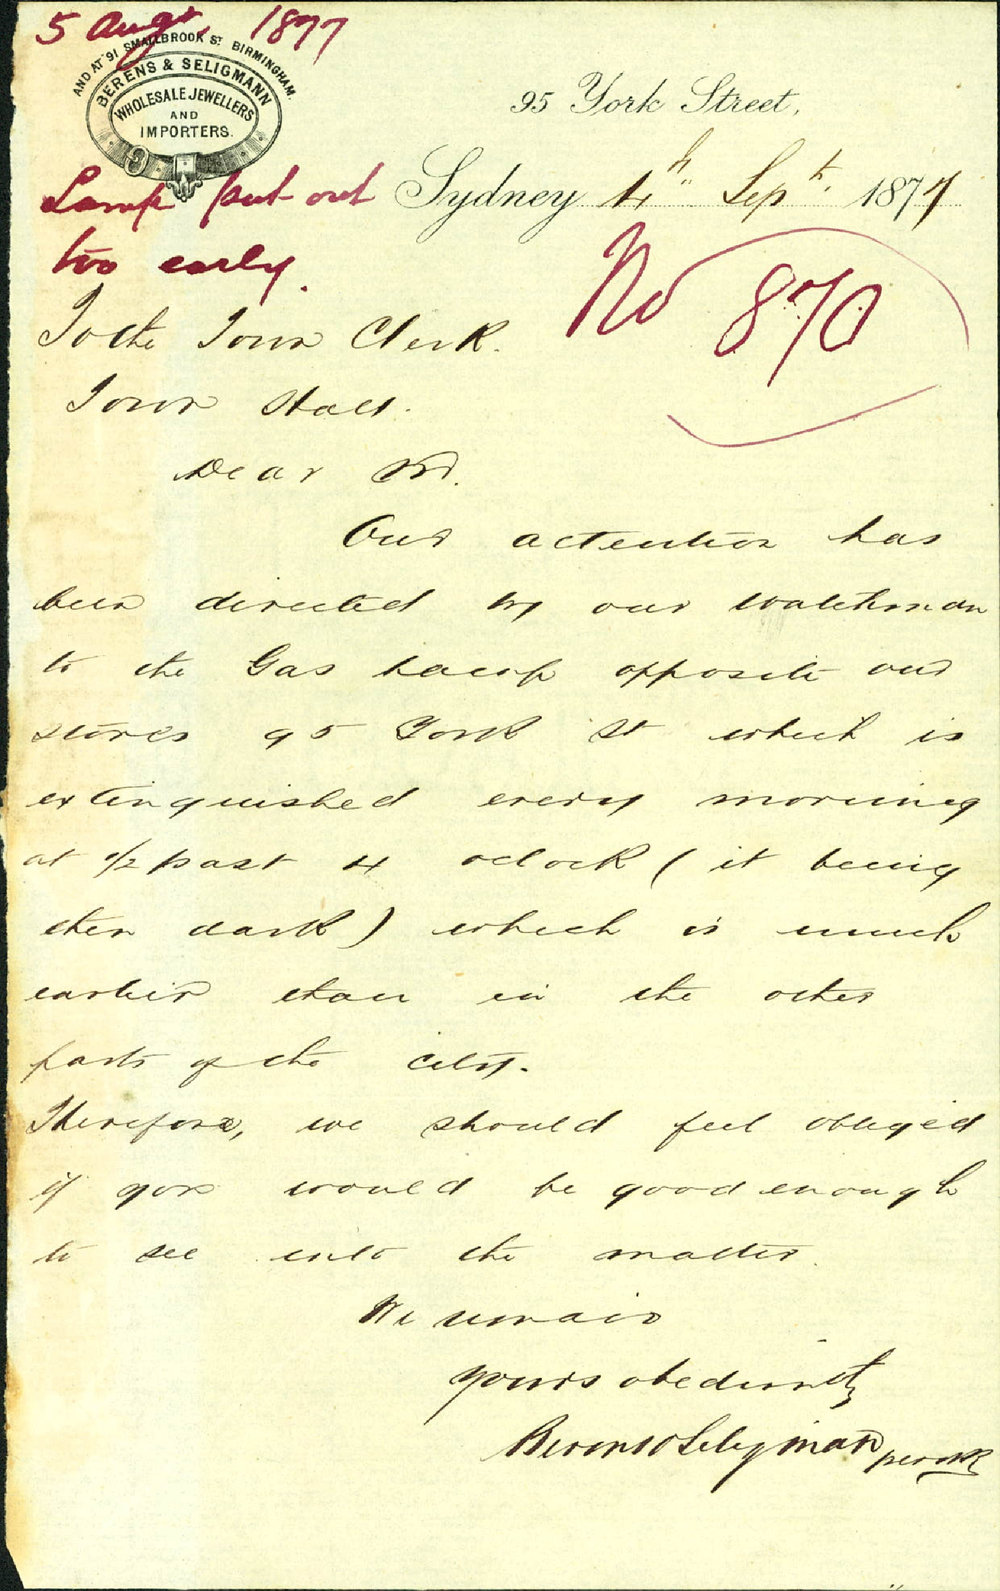 5 Augt. 1877
AND AT 91 SMALLBROOK ST. BIRMINGHAM.
BERENS & SELIGMANN
WHOLESALE JEWELLERS
AND
IMPORTERS.
95 York Street,
Sydney 4th Sept. 1877
Lamp put out
too early.
No 870
To the Town Clerk.
Town Hall.
Dear Sir.
Our attention has
been directed by our watchman
to the Gas Lamp opposite our
stores 95 York St which is
extinguished every morning
at 1/2 past 4 oclock ( it being
then dark ) which is much
earlier than in the other
parts of the City.
Therefore, we should feel obliged
if you would be good enough
to see into the matter.
We remain
yours obediently
Berens & Seligmann